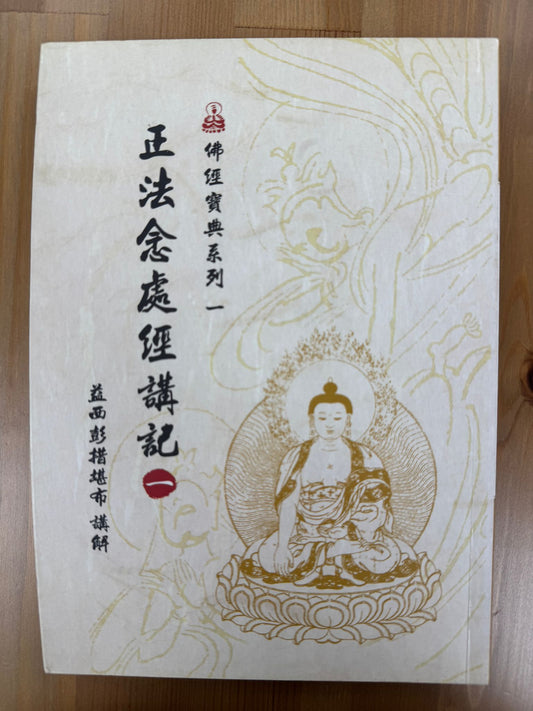 佛經寶典系列 一
正法念處經講記 一
益西彭措堪布 講解